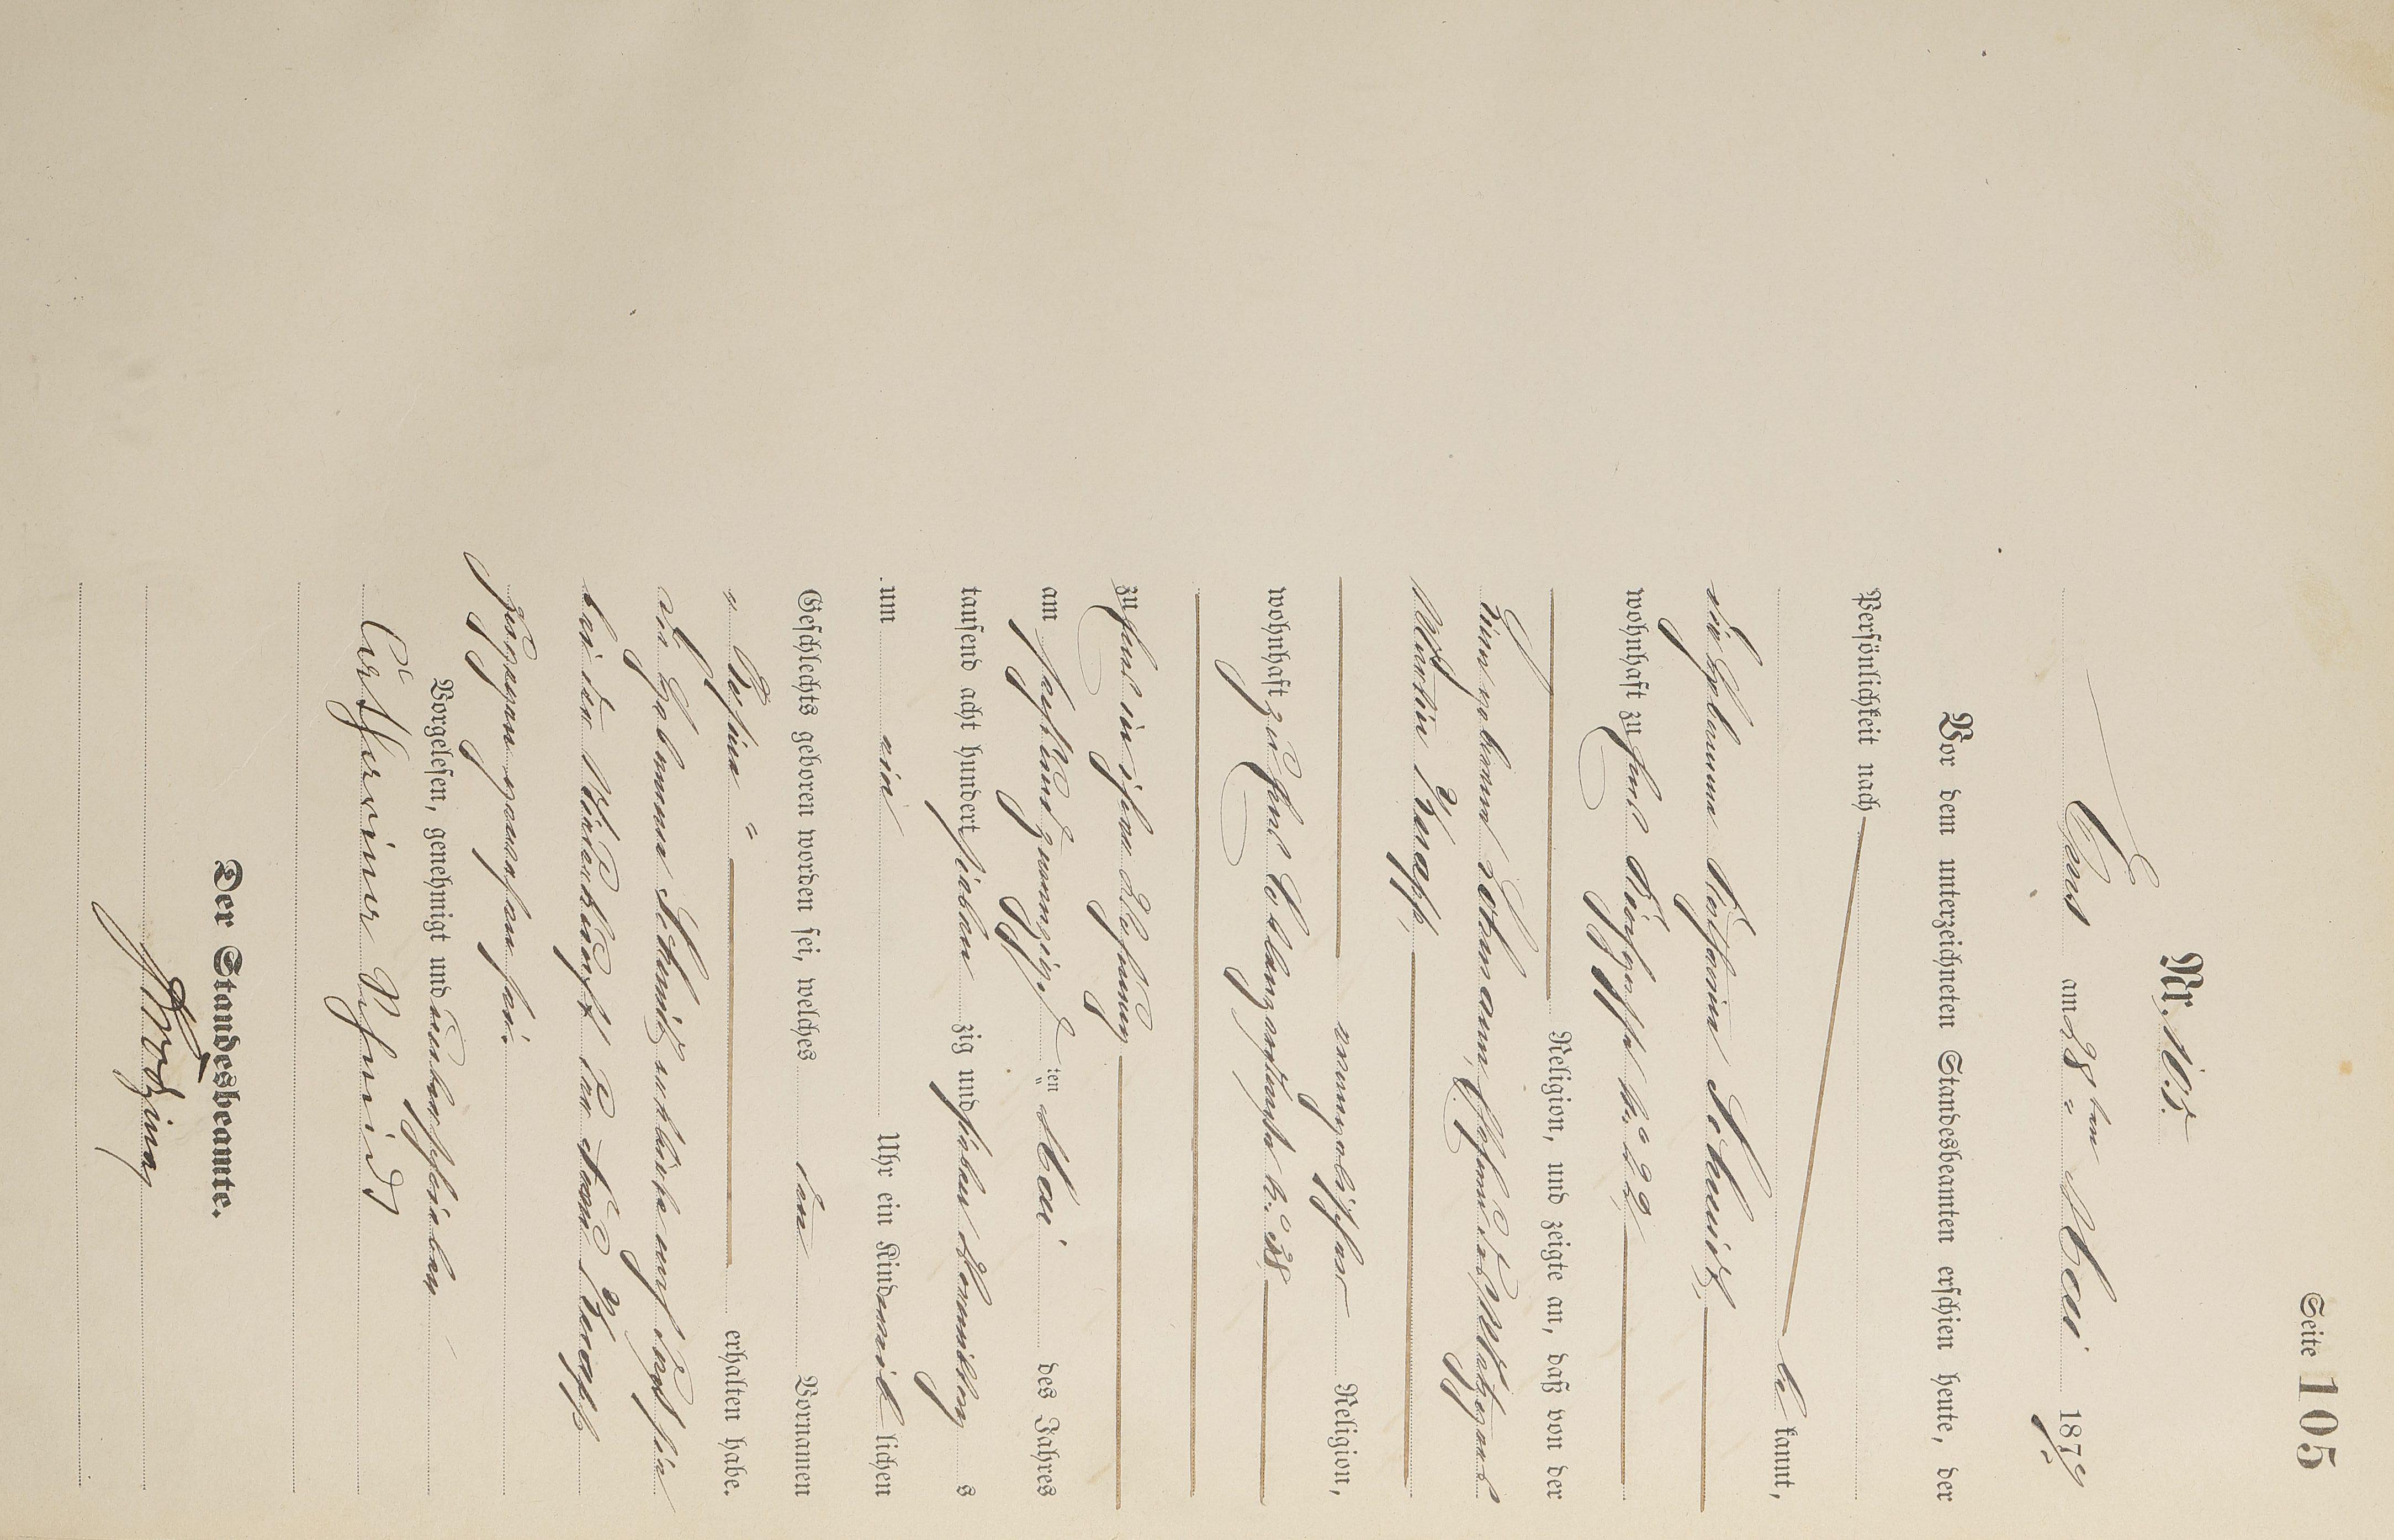 Seite 105
Nr. 105.
Ems am 28ten Mai 1877
Vor dem unterzeichneten Standesbeamten erschien heute, der
Persönlichkeit nach
bekannt,
die Hebamme Katharine Schmidt,
wohnhaft zu Ems
№ 22,
Religion, und zeigte an, daß von der
Lina geborene Lohmann, Ehefrau des Metzgers
Martin Knapp,
evangelischer Religion,
wohnhaft zu Ems № 38,
zu Ems in ihrer Wohnung
am sechsundzwanzigsten Mai des Jahres
tausend acht hundert siebenzig und sieben Vormittags
um ein Uhr ein Kind männlichen
Geschlechts geboren worden sei, welches den Vornamen
"" erhalten habe.
Die Hebamme Schmidt erklärte noch daß sie
bei der Niederkunft der Frau Knapp
zugegen gewesen sei.
Vorgelesen, genehmigt und unterschrieben
Catharina Schmidt
Der Standesbeamte.